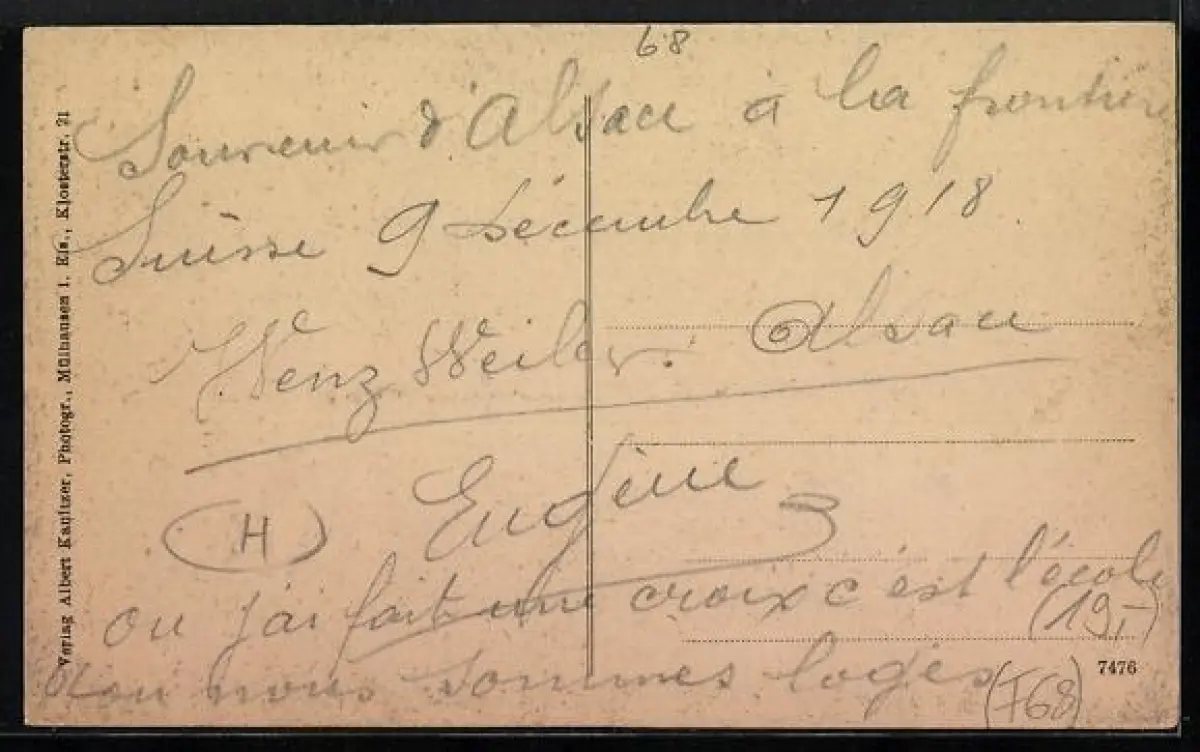 68
Souvenir d'Alsace à la frontière
Suisse 9 Décembre 1918
Wenz Weiler. Alsace
(H) Eugène
ou j'ai fait une croix c'est l'école
(19,-)
ou nous sommes logés
(F68)
7476
Verlag Albert Kanitzer, Photogr., Mülhausen i. Els., Klosterstr. 21